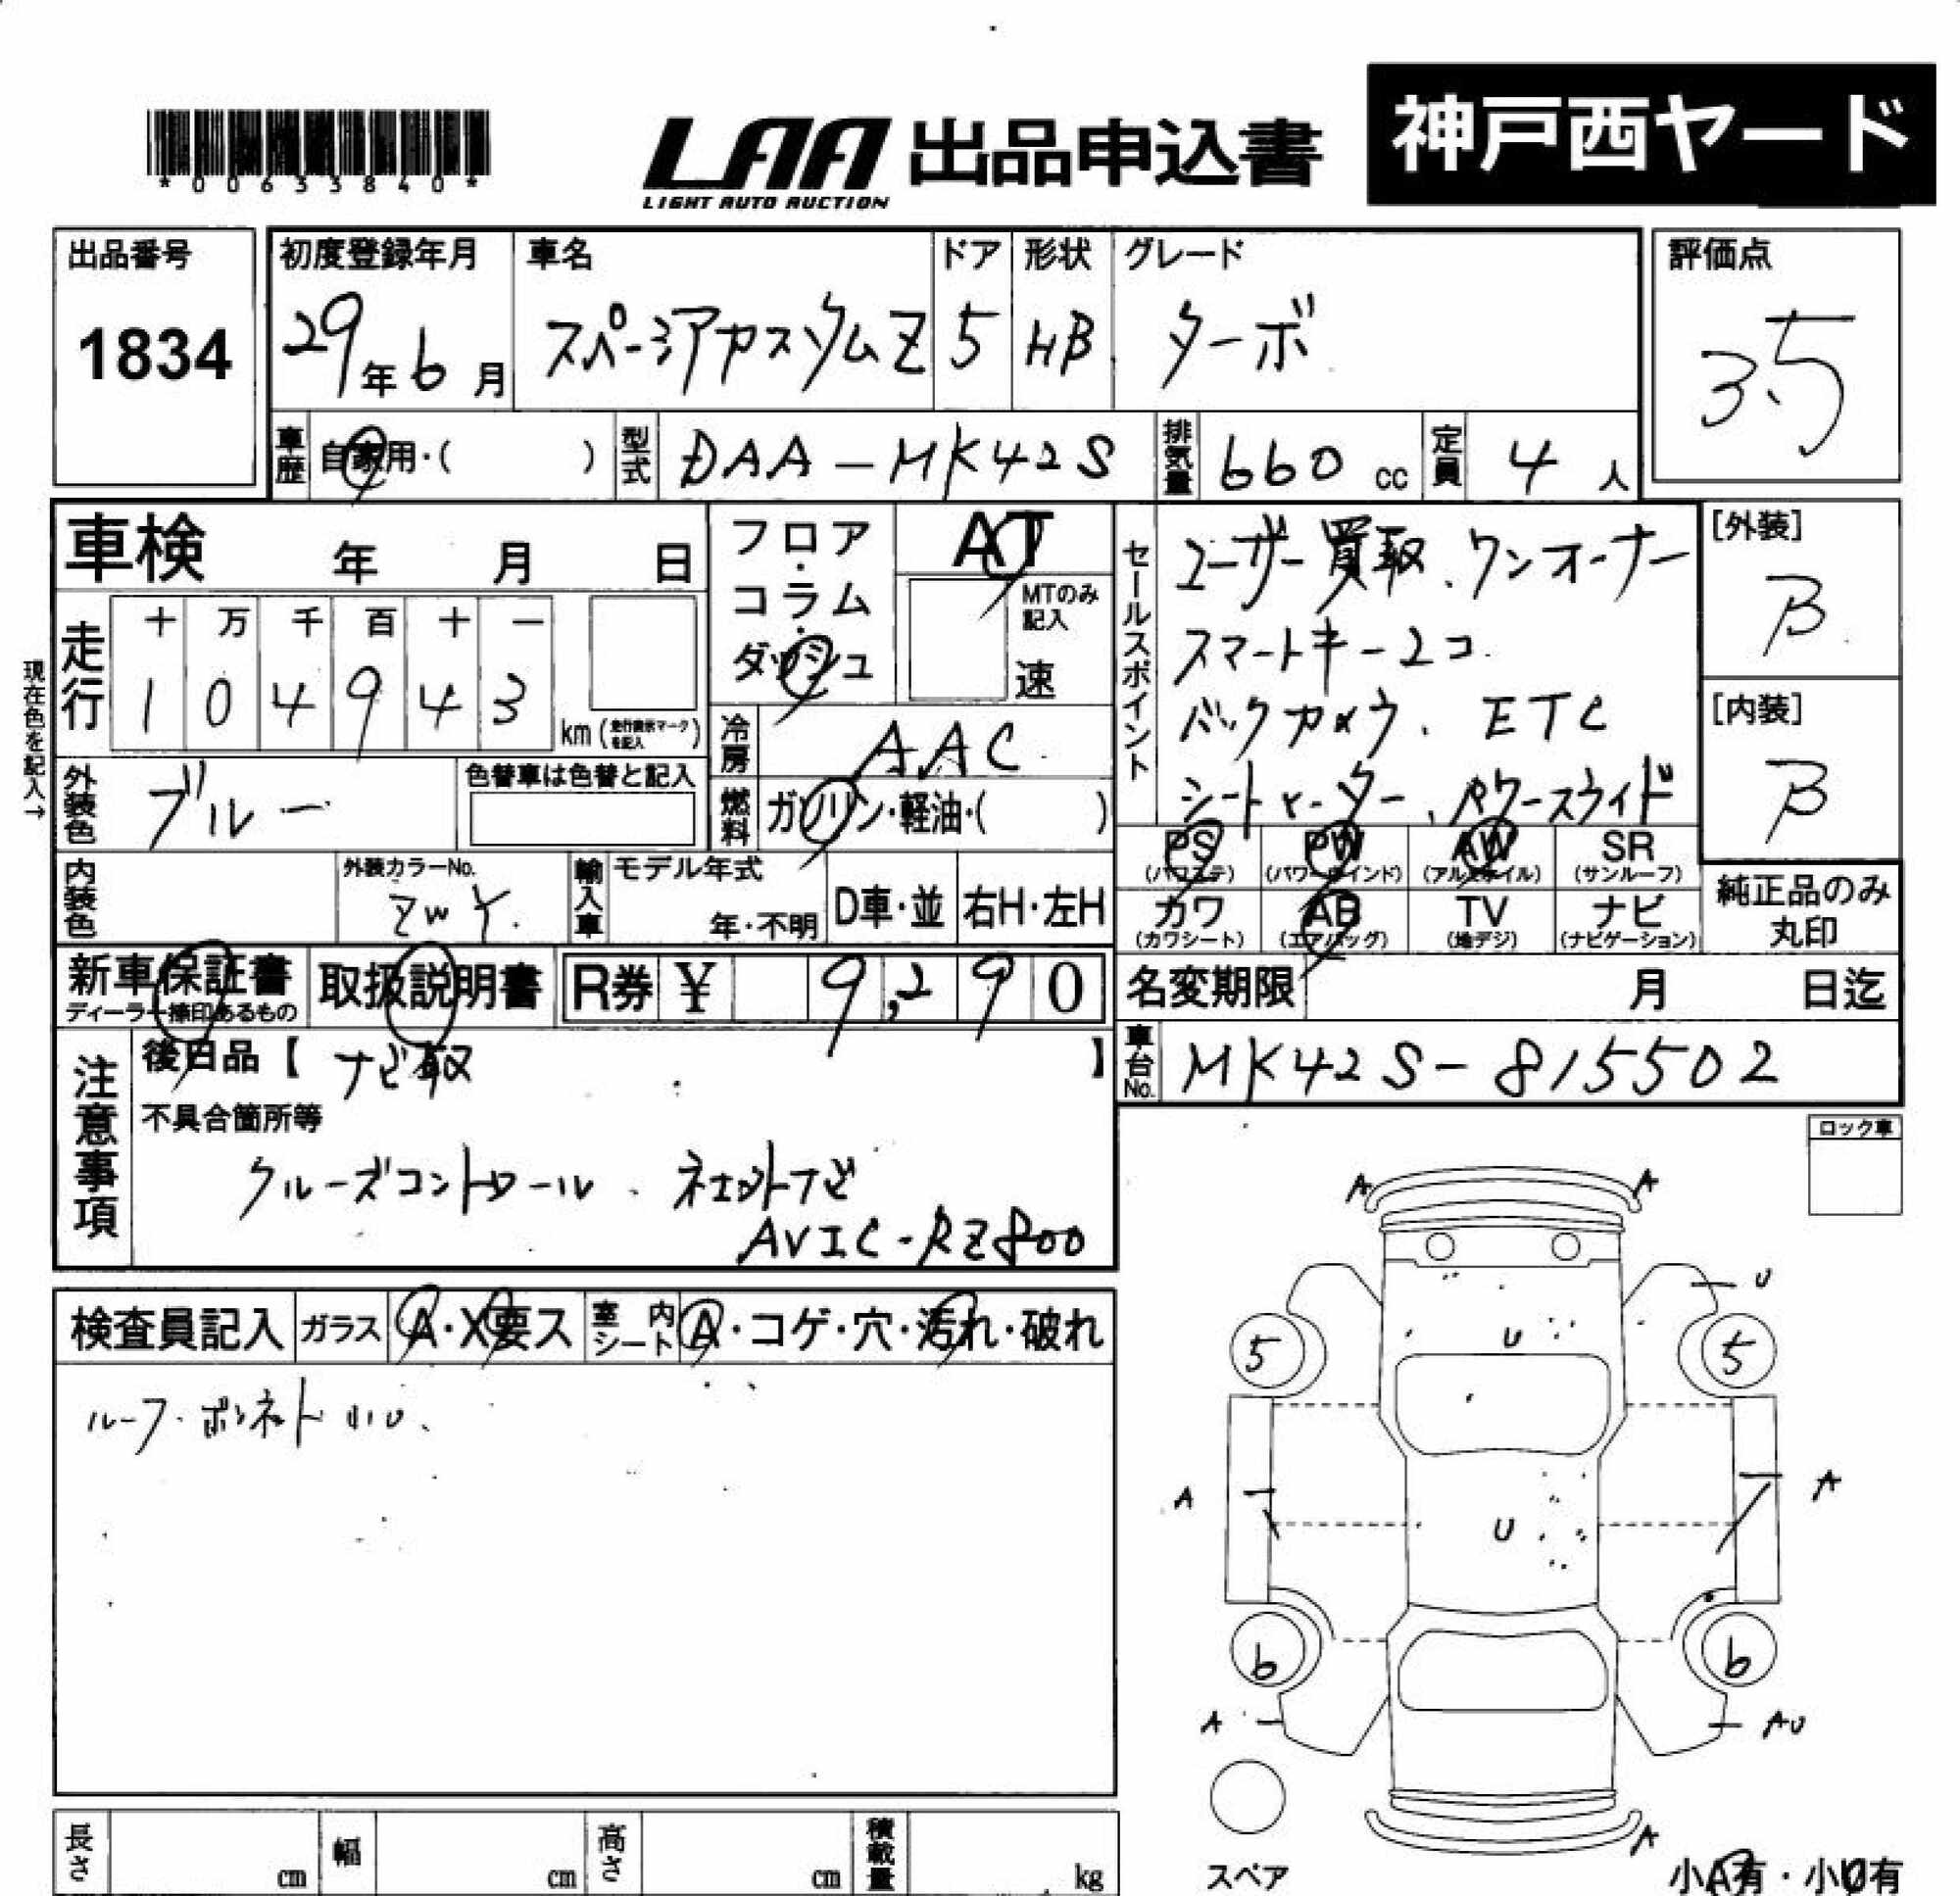 *00633840*
LAA 出品申込書
LIGHT AUTO AUCTION
神戸西ヤード
出品番号
1834
初度登録年月
29年6月
車名
スペーシアカスタムZ
ドア
5
形状
HB
グレード
ターボ
評価点
3.5
車歴
自家用・( )
型式
DAA-MK42S
排気量
660 cc
定員
4人
車検 年 月 日
フロア・コラム・ダッシュ
AT
MTのみ記入
速
現在色を記入→
走行
十 万 千 百 十 一
1 0 4 9 4 3
km(走行表示マークを記入)
冷房
AAC
外装色
ブルー
色替車は色替と記入
燃料
ガソリン・軽油・( )
内装色
外装カラーNo.
ZWY
輸入車
モデル年式
年・不明
D車・並
右H・左H
セールスポイント
ユーザー買取、ワンオーナー
スマートキー2コ
バックカメラ、ETC
シートヒーター、パワースライド
[外装]
B
[内装]
B
PS
(パワステ)
PW
(パワーウインド)
AW
(アルミホイル)
SR
(サンルーフ)
カワ
(カワシート)
AB
(エアバッグ)
TV
(地デジ)
ナビ
(ナビゲーション)
純正品のみ
丸印
新車保証書
ディーラー捺印あるもの
取扱説明書
R券 ¥ 9,290
名変期限 月 日迄
車台No.
MK42S-815502
注意事項
後日品【 ナビ取 】
不具合箇所等
クルーズコントロール、社外ナビ
AVIC-RZ800
ロック車
検査員記入
ガラス
A・X要ス
室内シート
A・コゲ・穴・汚れ・破れ
ルーフ・ボンネット小U、
A A
U
U
5 5
A A
U
6 6
A AU
A
スペア
小A有・小U有
長さ cm
幅 cm
高さ cm
積載量 kg